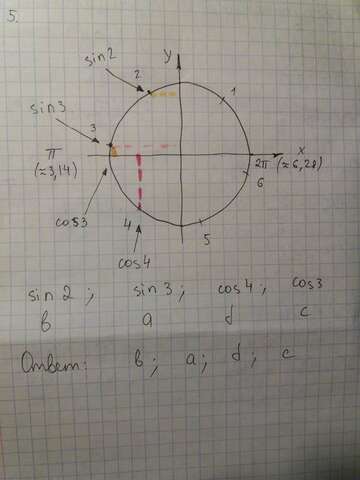 5.
y
sin2
2
1
sin3
3
π
(≈3,14)
x
2π (≈6,28)
6
cos3
4
5
cos4
sin 2 ; sin 3 ; cos 4 ; cos3
в a d c
Ответ: в ; a ; d ; c